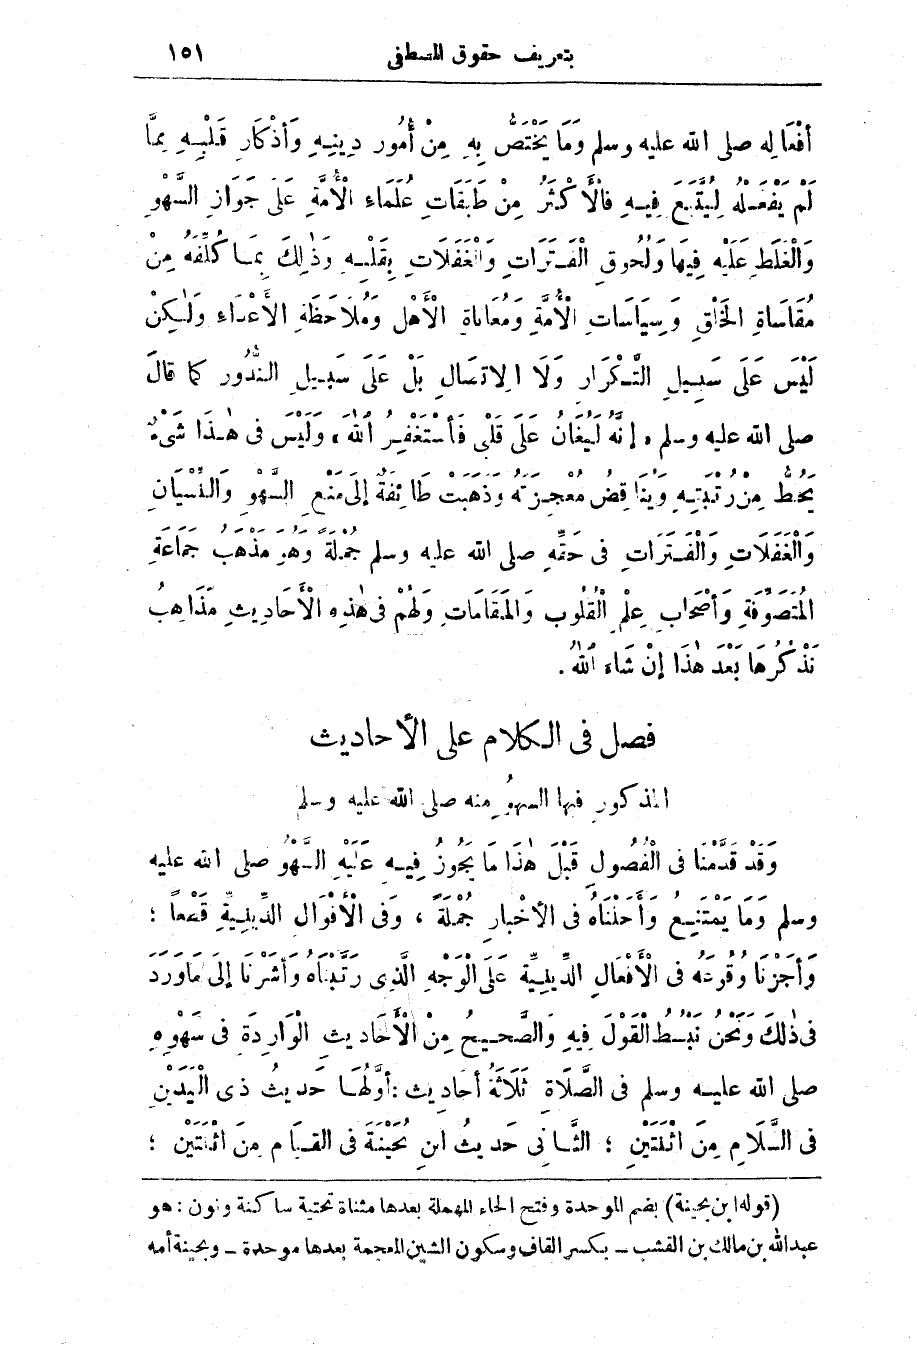 بتعريف حقوق المصطفى ١٥١
أَفْعَالِه صلى الله عليه وسلم وَمَا يَخْتَصُّ بِهِ مِنْ أُمُورِ دِينِهِ وَأَذْكَارِ قَلْبِهِ مِمَّا
لَمْ يَفْعَلْهُ لِيُتَّبَعَ فِيهِ فالْأَكْثَرُ مِنْ طَبَقَاتِ عُلَمَاءِ الْأُمَّةِ عَلَى جَوَازِ السَّهْوِ
وَالْغَلَطِ عَلَيْهِ فِيهَا وَلُحُوقِ الْفَتَرَاتِ وَالْغَفَلَاتِ بِقَلْبِهِ وَذٰلِكَ بِمَا كُلِّفَهُ مِنْ
مُقَاسَاةِ الخَلْقِ وَسِيَاسَاتِ الْأُمَّةِ وَمُعَانَاةِ الْأَهْلِ وَمُلَاحَظَةِ الأَعْدَاءِ وَلٰكِنْ
لَيْسَ عَلَى سَبِيلِ التَّكْرَارِ وَلَا الِاتصَالِ بَلْ عَلَى سَبِيلِ النُّدُورِ كما قالَ
صلى الله عليه وسلم « إنَّهُ لَيُغَانُ عَلَى قَلْبِى فَأَسْتَغْفِرُ اللهَ » وَلَيْسَ فى هٰذَا شَىْءٌ
يَحُطُّ مِنْ رُتْبَتِهِ وَيُنَاقِضُ مُعْجِزَتَهُ وَذَهَبَتْ طَائِفَةٌ إلَى مَنْعِ السَّهْوِ وَالنِّسْيَانِ
وَالْغَفَلَاتِ وَالْفَتَرَاتِ فى حَقِّهِ صلى الله عليه وسلم جُمْلَةً وَهُوَ مَذْهَبُ جَمَاعَةِ
الْمُتَصَوِّفَةِ وَأَصْحَابِ عِلْمِ الْقُلُوبِ وَالمَقَامَاتِ وَلَهُمْ فى هٰذِهِ الْأَحَادِيثِ مَذَاهِبُ
نَذْكُرُهَا بَعْدَ هٰذَا إنْ شَاءَ اللهُ .
فصل فى الكلام على الأحاديث
المذكور فيها السهوُ منه صلى الله عليه وسلم
وَقَدْ قَدَّمْنَا فى الْفُصُولِ قَبْلَ هٰذَا مَا يَجُوزُ فِيهِ عَلَيْهِ السَّهْوُ صلى الله عليه
وسلم وَمَا يَمْتَنِعُ وَأَحَلْنَاهُ فى الأخْبارِ جُمْلَةً ، وَفى الْأَقْوَالِ الدِّينِيةِ قَطْعاً ؛
وَأَجَزْنَا وُقُوعَهُ فى الْأَفْعَالِ الدِّينِيَّةِ عَلَى الْوَجْهِ الَّذِى رَتَّبْنَاهُ وَأَشَرْنَا إلَى مَاوَرَدَ
فى ذٰلِكَ وَنَحْنُ نَبْسُطُ الْقَوْلَ فِيهِ وَالصَّحِيحُ مِنَ الْأَحَادِيثِ الْوَارِدَةِ فى سَهْوِهِ
صلى الله عليه وسلم فى الصَّلَاةِ ثَلَاثَةُ أَحَادِيثَ : أَوَّلُهَا حَدِيثُ ذِى الْيَدَيْنِ
فى السَّلَامِ مِنَ اثْنَتَيْنِ ؛ الثَّانِى حَدِيثُ ابنِ بُحَيْنَةَ فى القِيَامِ مِنَ اثْنَتَيْنِ ؛
(قوله ابن بحينة) بضم الموحدة وفتح الحاء المهملة بعدها مثناة تحتية ساكنة ونون : هو
عبدالله بن مالك بن القشب – بكسر القاف وسكون الشين المعجمة بعدها موحدة – وبحينة أمه